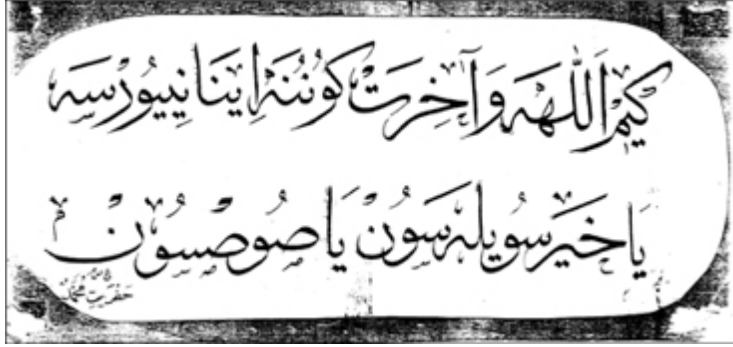 كيم اَللهَه وَآخِرَت كُونُنَه اِينَانِييُورْسَه
يَا خَيَر سُويلَه سَوُنْ يَا صُوصْسُون
حضرت محمد